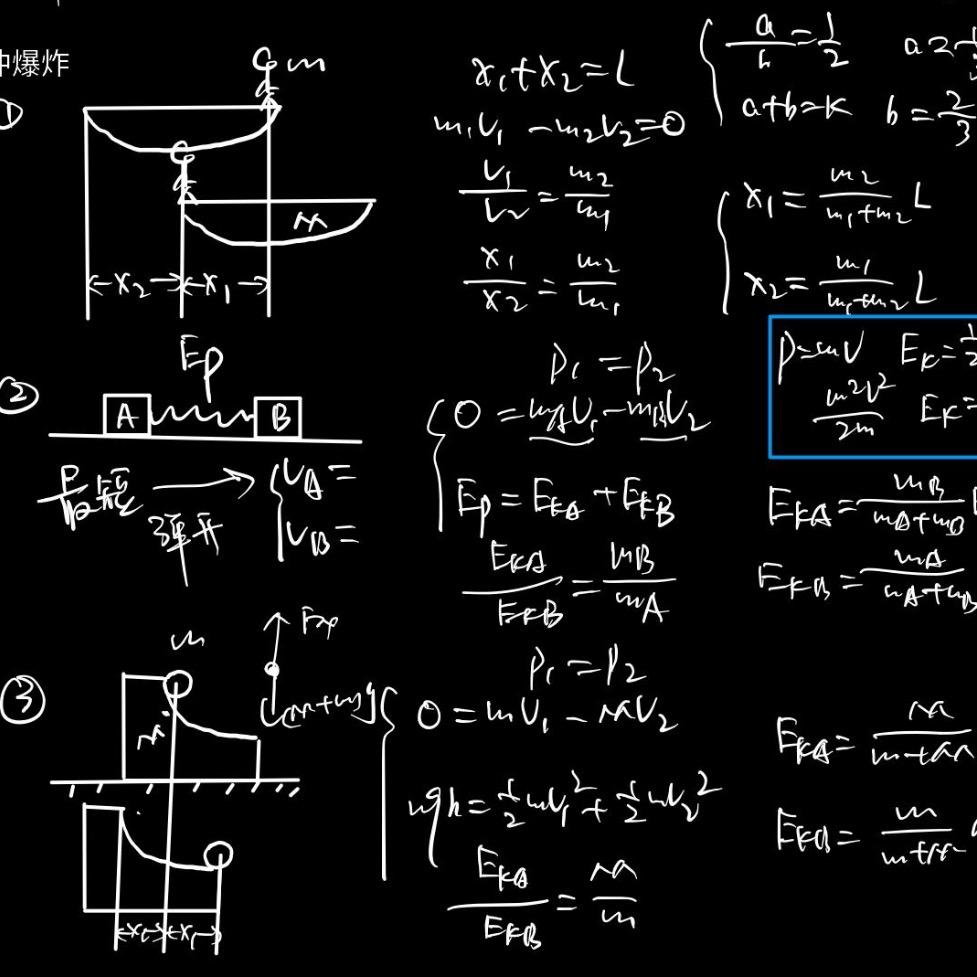 冲爆炸
①
m
M
x₂ x₁
x₁+x₂=L
m₁v₁-m₂v₂=0
v₁/v₂=m₂/m₁
x₁/x₂=m₂/m₁
a/b=1/2
a+b=K b=2/3
x₁=m₂/(m₁+m₂) L
x₂=m₁/(m₁+m₂) L
②
Ep
A B
最短 弹开
v_A=
v_B=
p₁=p₂
0=m_Av₁-m_Bv₂
Ep=E_kA+E_kB
E_kA/E_kB=m_B/m_A
p=mv
m²v²/2m
E_kA=m_B/(m_A+m_B)
E_kB=m_A/(m_A+m_B)
③
m
M
(M+m)g
x₁
p₁=p₂
0=mv₁-Mv₂
mgh=½mv₁²+½mv₂²
E_kA/E_kB=M/m
E_kA=M/(m+M)
E_kB=m/(m+M)